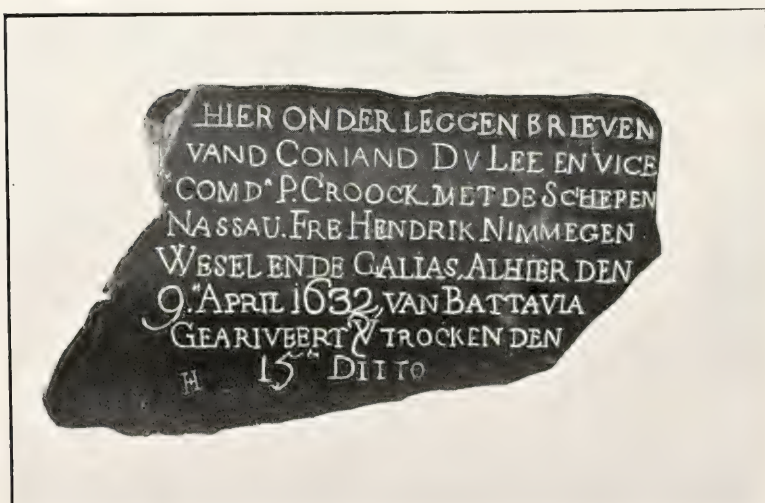 HIER ONDER LEGGEN BRIEVEN
VAND COMAND DV LEE EN VICE
COMDR P. CROOCK MET DE SCHEPEN
NASSAU. FRE HENDRIK NIMMEGEN
WESEL ENDE GALIAS, ALHIER DEN
9.N APRIL 1632, VAN BATTAVIA
GEARIVEERT & VTROCKEN DEN
H 15EN DITTO